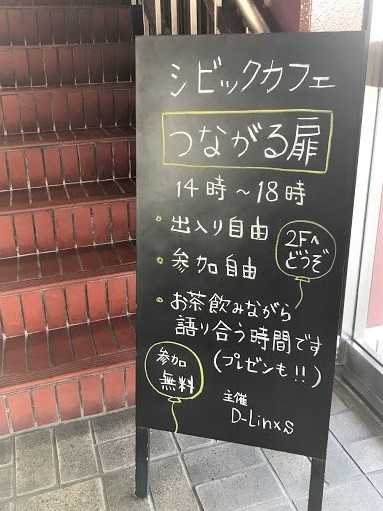 シビックカフェ
つながる扉
14時～18時
• 出入り自由
2Fへ
どうぞ
• 参加自由
• お茶飲みながら
語り合う時間です
(プレゼンも!!)
参加
無料
主催
D-Linxs